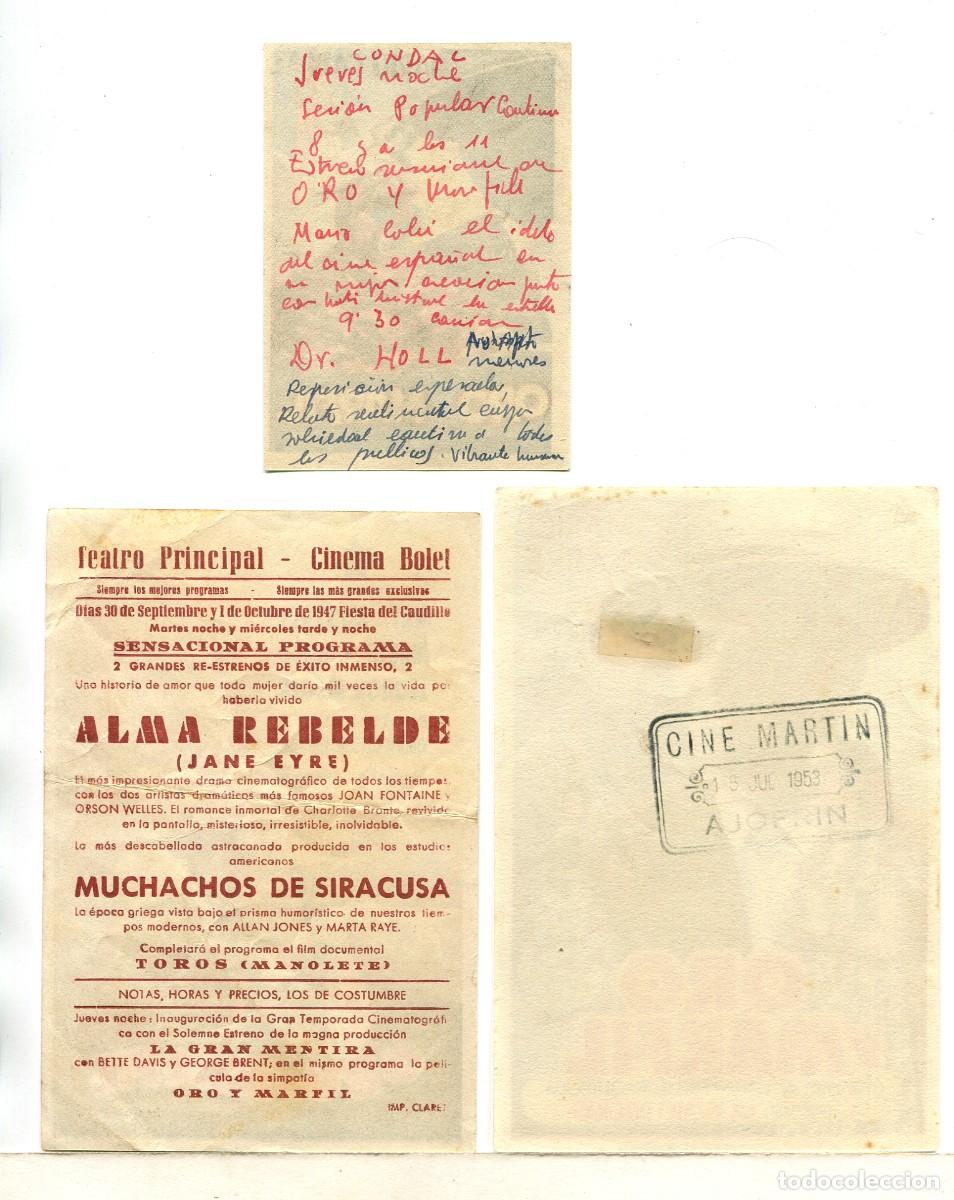 CONDAL
Jueves noche
Sesión Popular Continua
8 y a las 11
Estreno
ORO Y Marfil
Mario Cabré el idolo
del cine español en
su mejor creacion junto
con
9'30
Dr. HOLL
menores
Reposición esperada,
Relato sentimental cuya
a todos
los publicos. Vibrante humano
Teatro Principal - Cinema Bolet
Siempre los mejores programas - Siempre las más grandes exclusivas
Días 30 de Septiembre y 1 de Octubre de 1947 Fiesta del Caudillo
Martes noche y miércoles tarde y noche
SENSACIONAL PROGRAMA
2 GRANDES RE-ESTRENOS DE ÉXITO INMENSO, 2
Una historia de amor que toda mujer daría mil veces la vida por
haberla vivido
ALMA REBELDE
(JANE EYRE)
El más impresionante drama cinematográfico de todos los tiempos
con los dos artistas dramáticos más famosos JOAN FONTAINE y
ORSON WELLES. El romance inmortal de Charlotte Bronte revivido
en la pantalla, misterioso, irresistible, inolvidable.
La más descabellada astracanada producida en los estudios
americanos
MUCHACHOS DE SIRACUSA
La época griega vista bajo el prisma humorístico de nuestros tiem-
pos modernos, con ALLAN JONES y MARTA RAYE.
Completará el programa el film documental
TOROS (MANOLETE)
NOTAS, HORAS Y PRECIOS, LOS DE COSTUMBRE
Jueves noche: Inauguración de la Gran Temporada Cinematográfi
ca con el Solemne Estreno de la magna producción
LA GRAN MENTIRA
con BETTE DAVIS y GEORGE BRENT; en el mismo programa la pelí-
cula de la simpatía
ORO Y MARFIL
IMP. CLARET
CINE MARTIN
JUL 1953
todocoleccion